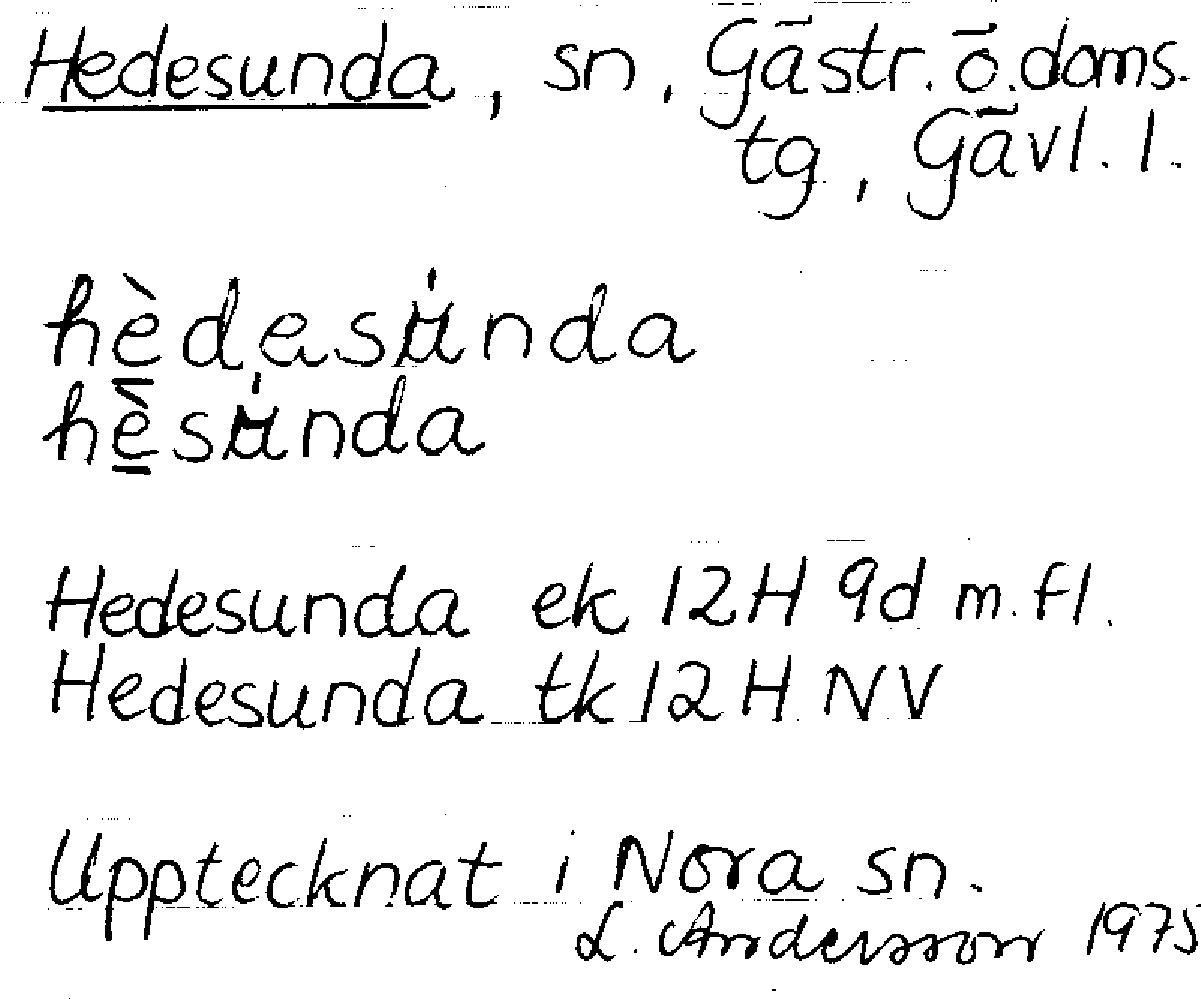 Hedesunda, sn, Gästr. ö. doms.
tg, Gävl. l.
hèdesu̇nda
hèsu̇nda
Hedesunda ek 12H 9d m. fl.
Hedesunda tk 12H NV
Upptecknat i Nora sn.
L. Andersson 1975